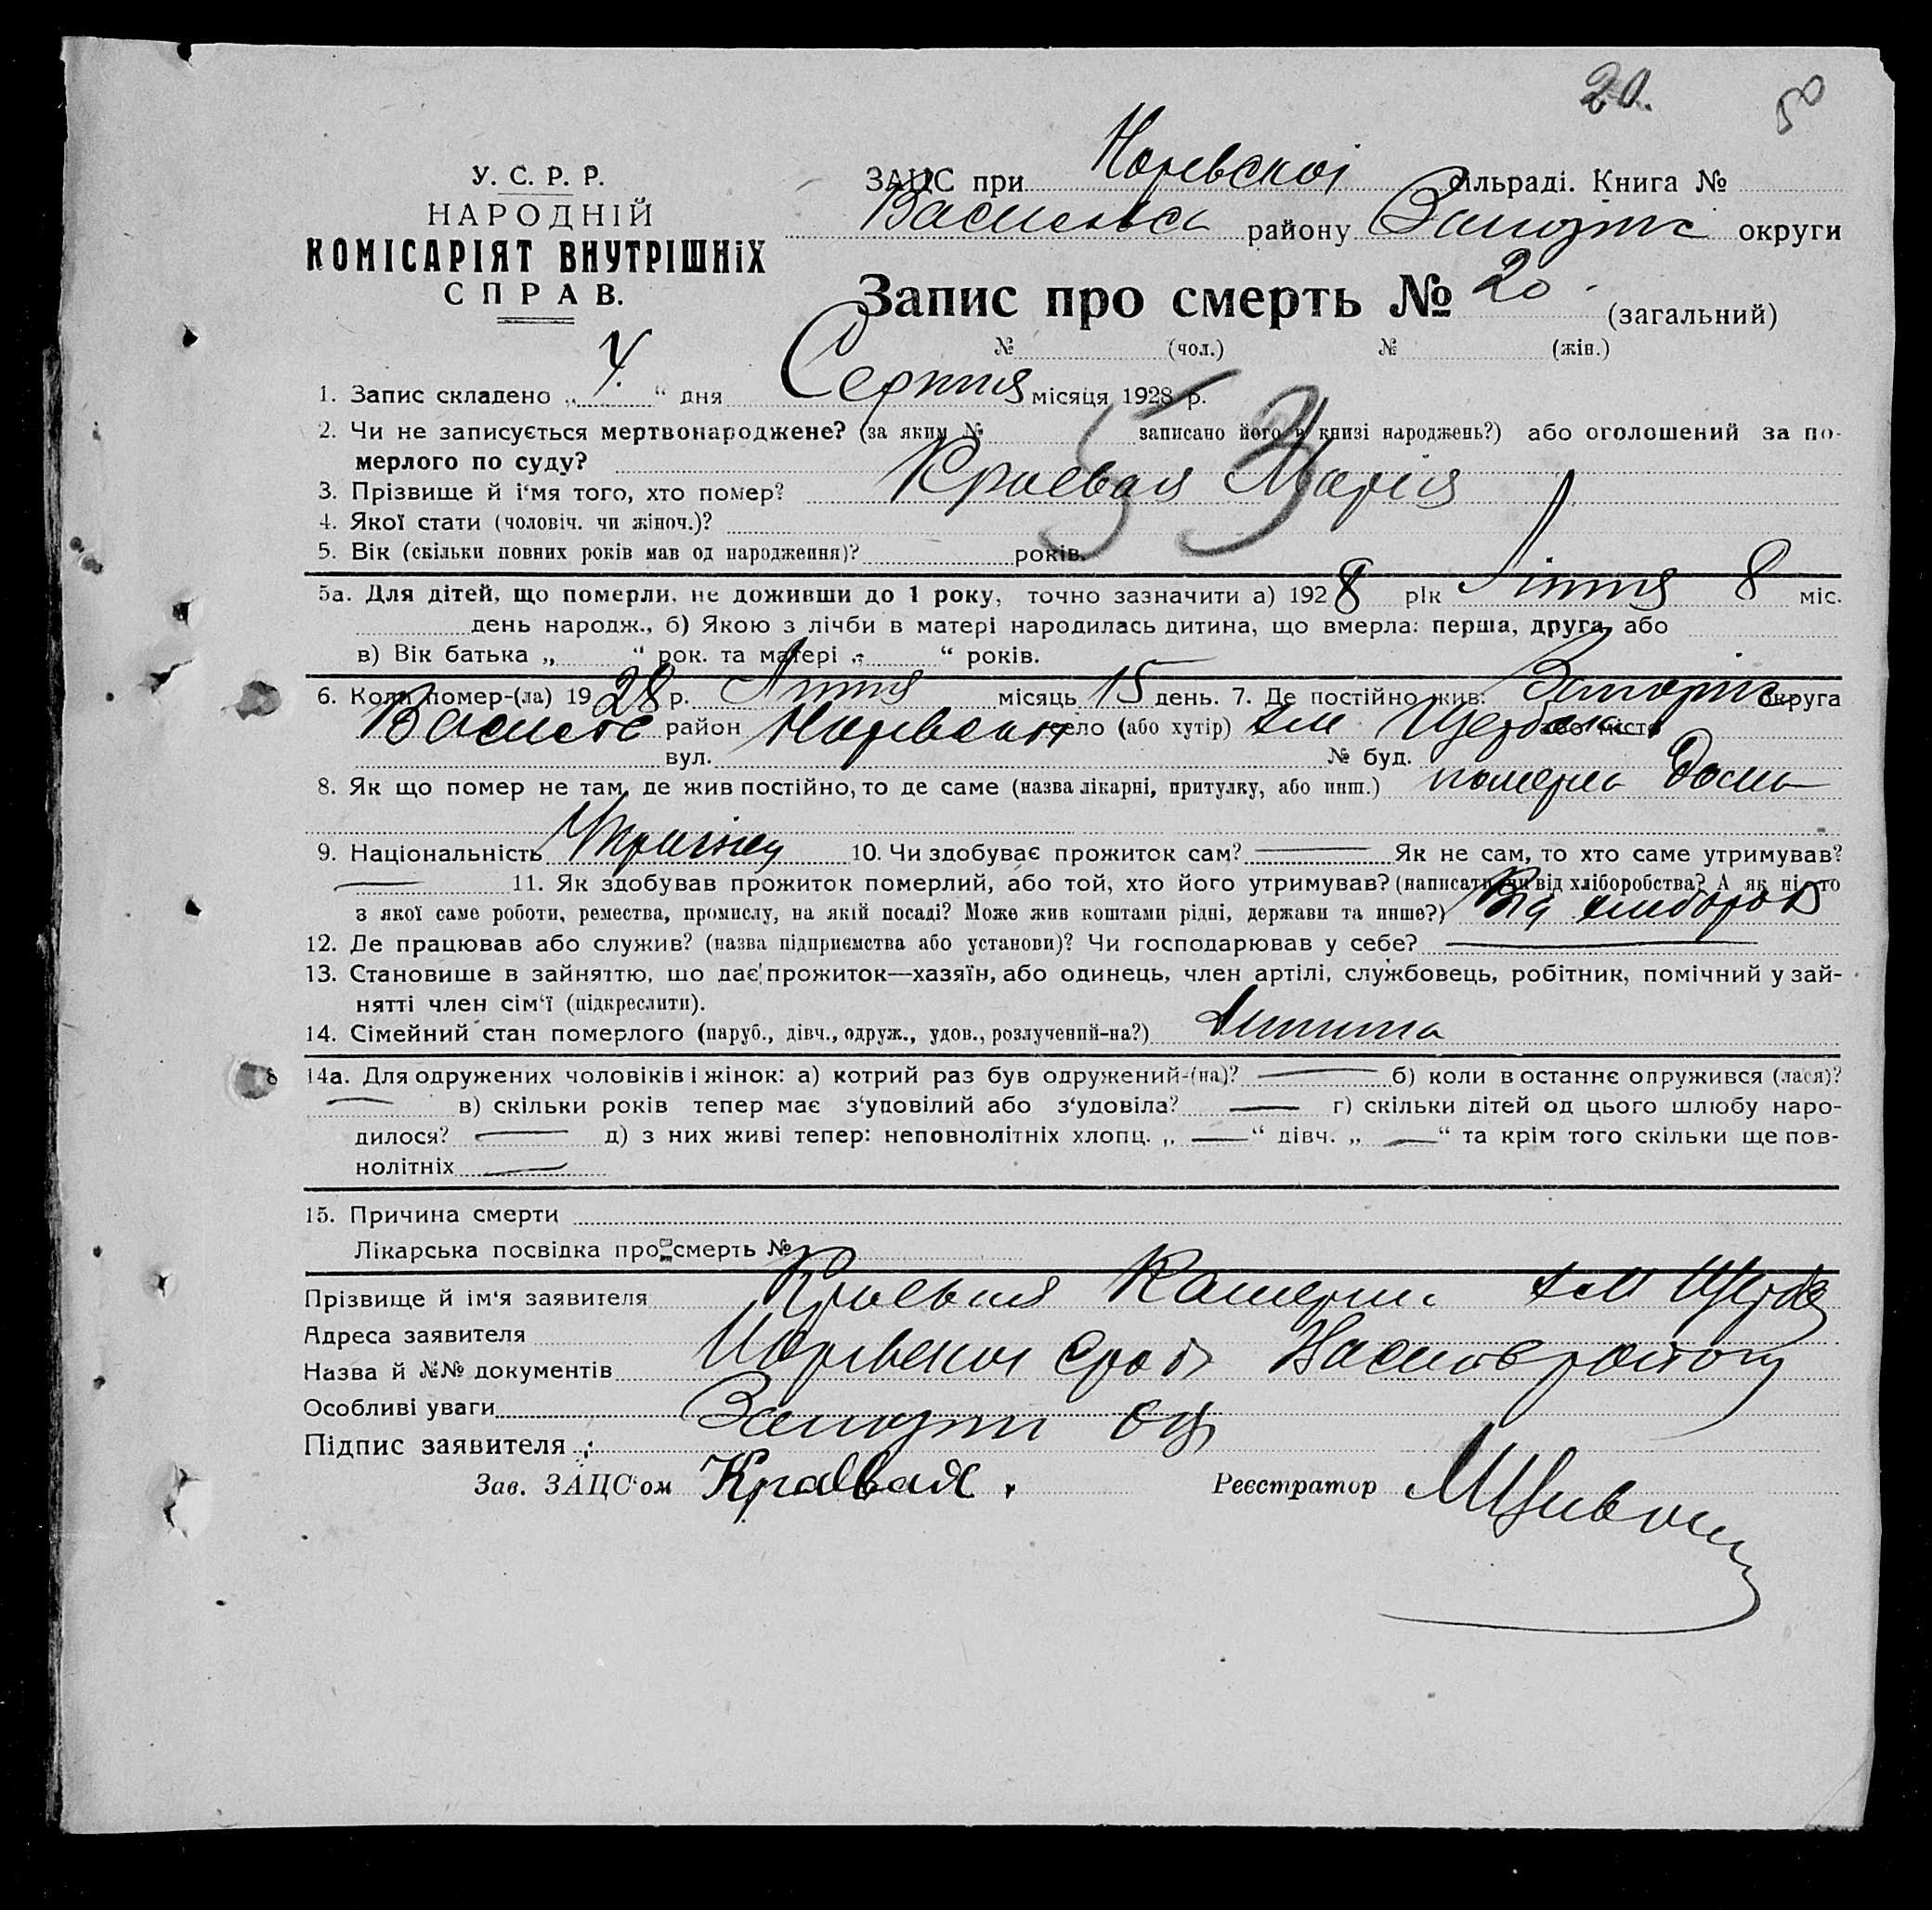 20. 50
У. С. Р. Р.
НАРОДНІЙ
КОМІСАРІЯТ ВНУТРІШНіХ
СПРАВ.
ЗАЦС при сільраді. Книга №
району округи
Запис про смерть № 20. (загальний)
№ (чол.) № (жін.)
1. Запис складено „ “ дня Серпня місяця 1928 р.
2. Чи не записується мертвонароджене? (за яким № записано його в книзі народжень?) або оголошений за по-
мерлого по суду?
53
3. Прізвище й і‘мя того, хто помер? Краевая Марія
4. Якої стати (чоловіч. чи жіноч.)?
5. Вік (скільки повних років мав од народження)? років.
5а. Для дітей, що померли, не доживши до 1 року, точно зазначити а) 1928 рік Літня 8 міс.
день народж., б) Якою з лічби в матері народилась дитина, що вмерла: перша, друга, або
в) Вік батька „ “ рок. та матері „ “ років.
6. Коли помер-(ла) 1928 р. Літня місяць 15 день. 7. Де постійно жив: округа
район село (або хутір) або місто
вул. № буд.
8. Як що помер не там, де жив постійно, то де саме (назва лікарні, притулку, або инш.) померла дома
9. Національність 10. Чи здобуває прожиток сам? — Як не сам, то хто саме утримував?
— 11. Як здобував прожиток померлий, або той, хто його утримував? (написати чи від хліборобства? А як ні, то
з якої саме роботи, ремества, промислу, на якій посаді? Може жив коштами рідні, держави та инше?) Від хлібороб
12. Де працював або служив? (назва підприємства або установи)? Чи господарював у себе? —
13. Становище в зайняттю, що дає прожиток—хазяїн, або одинець, член артілі, службовець, робітник, помічний у зай-
нятті член сім‘ї (підкреслити).
14. Сімейний стан померлого (паруб., дівч., одруж., удов., розлучений-на?) Дитина
14а. Для одружених чоловіків і жінок: а) котрий раз був одружений-(на)? — б) коли в останнє одружився (лася)?
— в) скільки років тепер має з‘удовілий або з‘удовіла? — г) скільки дітей од цього шлюбу наро-
дилося? — д) з них живі тепер: неповнолітніх хлопц. „ — “ дівч. „ — “ та крім того скільки ще пов-
нолітніх —
15. Причина смерти
Лікарська посвідка про смерть №
Прізвище й ім‘я заявителя Краевая Катерин.
Адреса заявителя
Назва й №№ документів
Особливі уваги
Підпис заявителя
Зав. ЗАЦС‘ом Краевая. Реєстратор